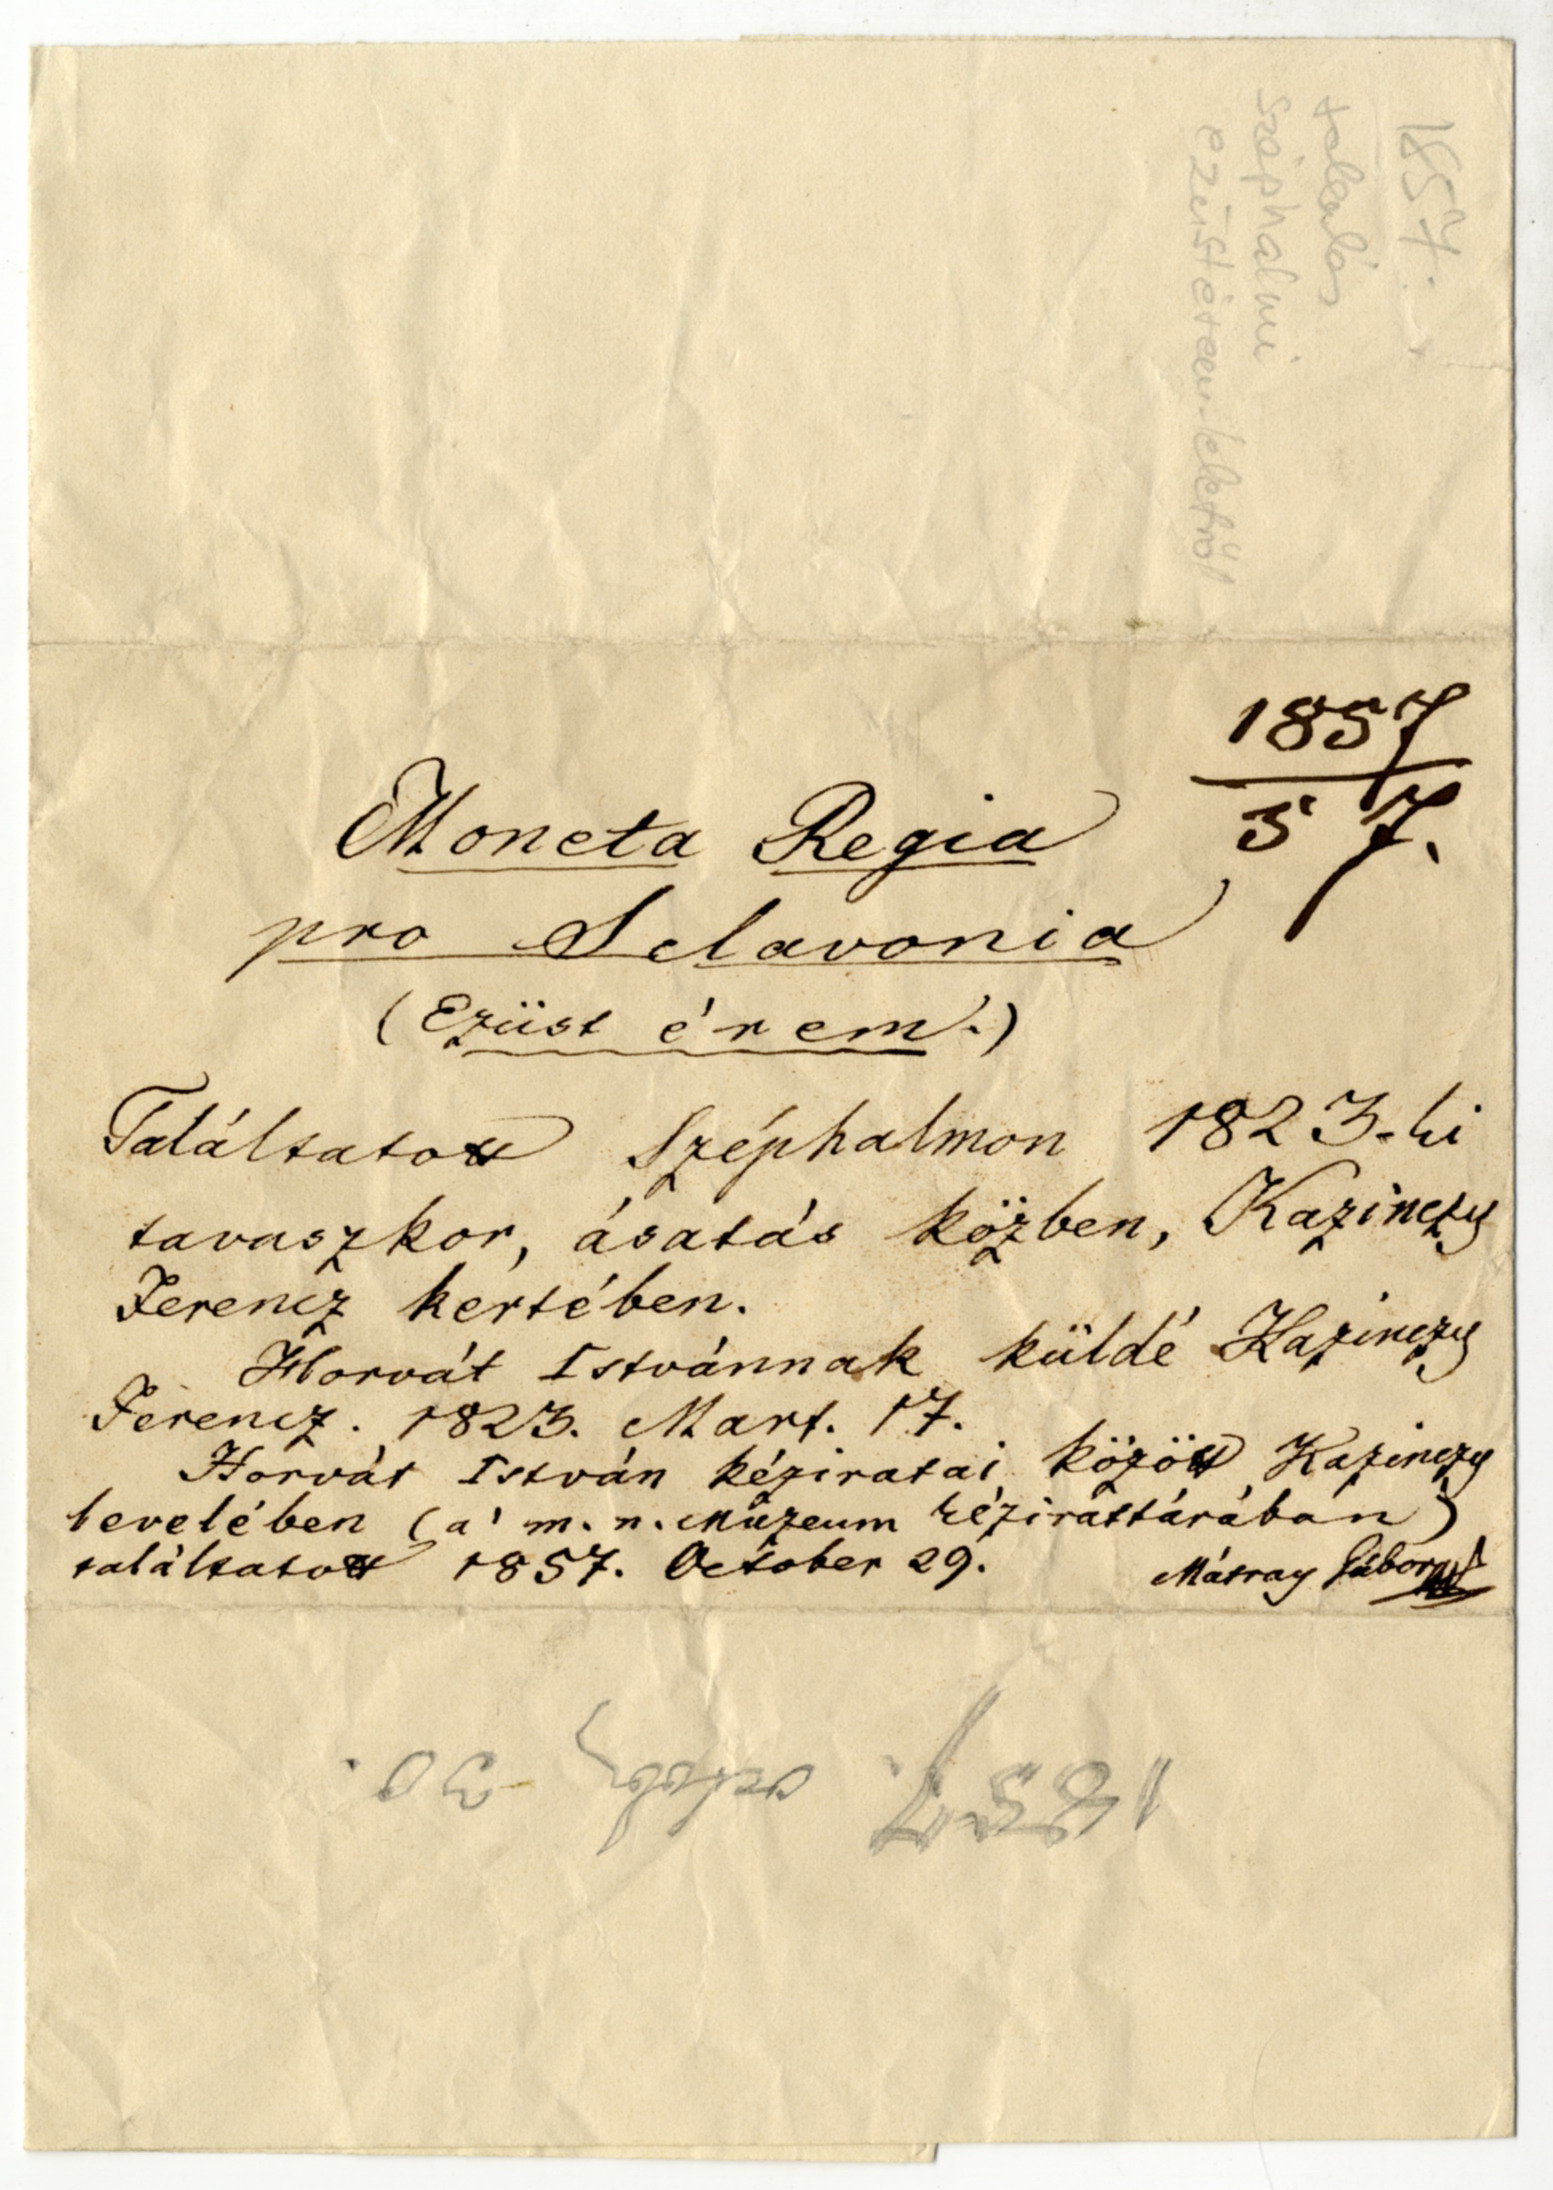 1857.
tudósítás
Széphalmi
ezüst érem-leletről
1857
57.
Moneta Regia
pro Sclavonia
(Ezüst érem.)
Találtatott Széphalmon 1823-ki
tavaszkor, ásatás közben, Kazinczy
Ferencz kertében.
Horvát Istvánnak küldé Kazinczy
Ferencz. 1823. Mart. 17.
Horvát István kéziratai között Kazinczy
levelében (a' m. n. Múzeum kézirattárában)
találtatott 1857. October 29.
Mátray Gábor
1857. 30.